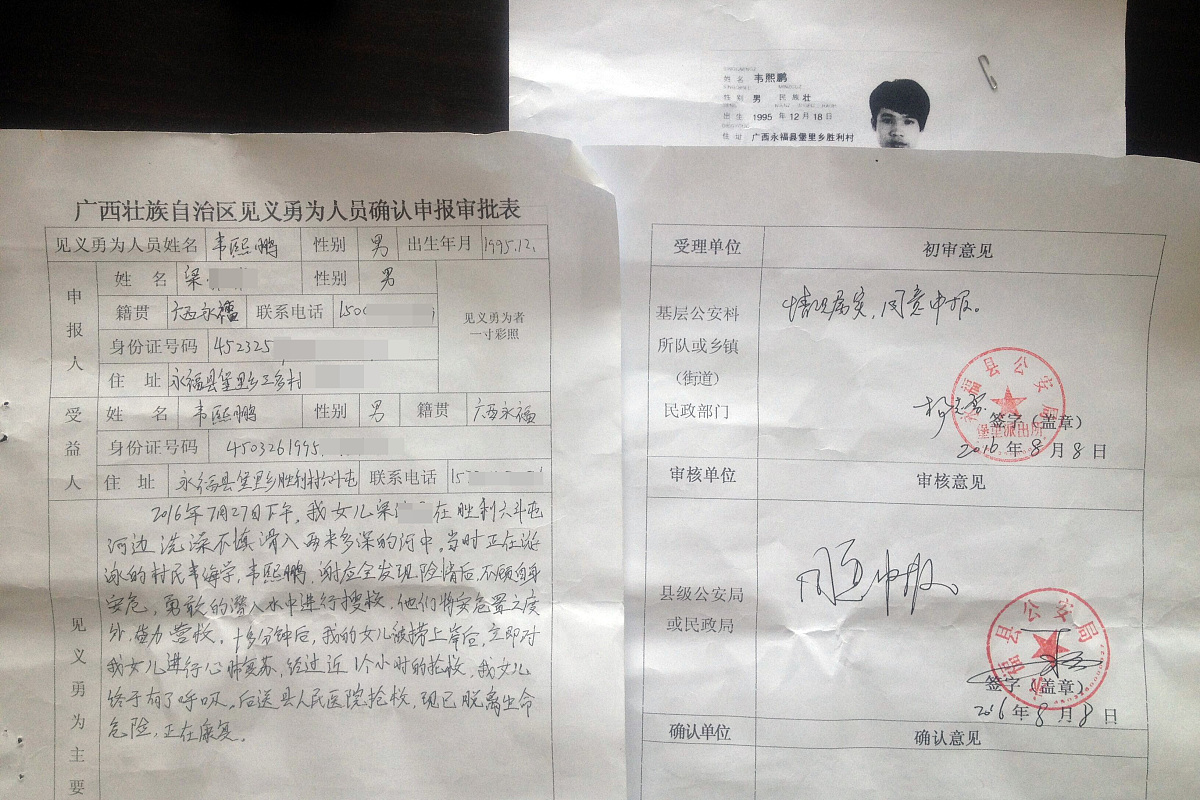 姓名 韦熙鹏
性别 男 民族 壮
出生 1995 年 12 月 18 日
住址 广西永福县堡里乡胜利村
广西壮族自治区见义勇为人员确认申报审批表
见义勇为人员姓名 韦熙鹏 性别 男 出生年月 1995.12.
申报人
姓 名 梁 性别 男
籍贯 广西永福 联系电话 150
身份证号码 452325
住 址 永福县堡里乡三多村
见义勇为者
一寸彩照
受益人
姓 名 韦熙鹏 性别 男 籍贯 广西永福
身份证号码 4503261995
住 址 永福县堡里乡胜利村六斗屯 联系电话 15
见义勇为主要
2016年7月27日下午，我女儿梁 在胜利六斗屯
河边洗澡不慎滑入两米多深的河中，当时正在游
泳的村民韦海学，韦熙鹏，谢应全发现险情后，不顾自身
安危，勇敢的潜入水中进行搜救，他们将安危置之度
外，奋力营救，十多分钟后，我的女儿被捞上岸后，立即对
我女儿进行心肺复苏，经过近1个小时的抢救，我女儿
终于有了呼吸，后送县人民医院抢救，现已脱离生命
危险，正在康复。
受理单位 初审意见
基层公安科
所队或乡镇
（街道）
民政部门
情况属实，同意申报。
永福县公安局
堡里派出所
签字（盖章）
2016年8月8日
审核单位 审核意见
县级公安局
或民政局
同意申报
永福县公安局
签字（盖章）
2016年8月8日
确认单位 确认意见